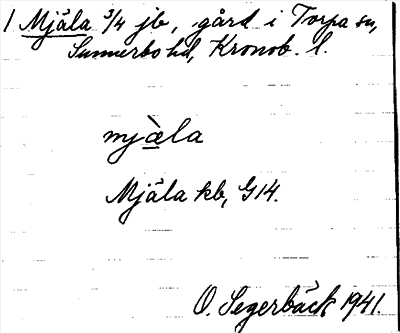 1 Mjäla 3/4 jb, gård i Torpa sn,
Sunnerbo hd, Kronob. l.
mjàla
Mjäla kb, G14.
O. Segerbäck 1941.